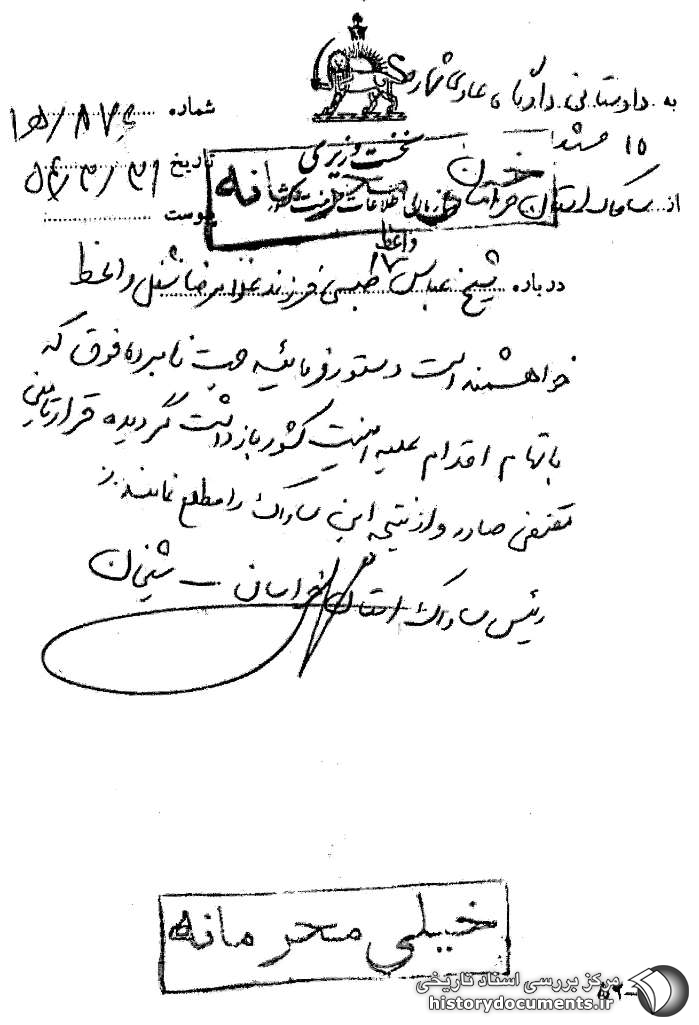 به دادستانی دادگاه عادی شماره
۱۵ مشهد
از ساواک استان خراسان
نخست وزیری
سازمان اطلاعات و امنیت کشور
خیلی محرمانه
شماره
تاریخ ۵۴/۳/۳۱
پیوست
واعظ
درباره شیخ عباس طبسی فرزند غلامرضا شغل واعظ
خواهشمند است دستور فرمائید جهت نامبرده فوق که
باتهام اقدام علیه امنیت کشور بازداشت گردیده قرار تامینی
مقتضی صادر و از نتیجه این ساواک را مطلع نمایند.
رئیس ساواک استان خراسان – شیخان
خیلی محرمانه
مرکز بررسی اسناد تاریخی
historydocuments.ir